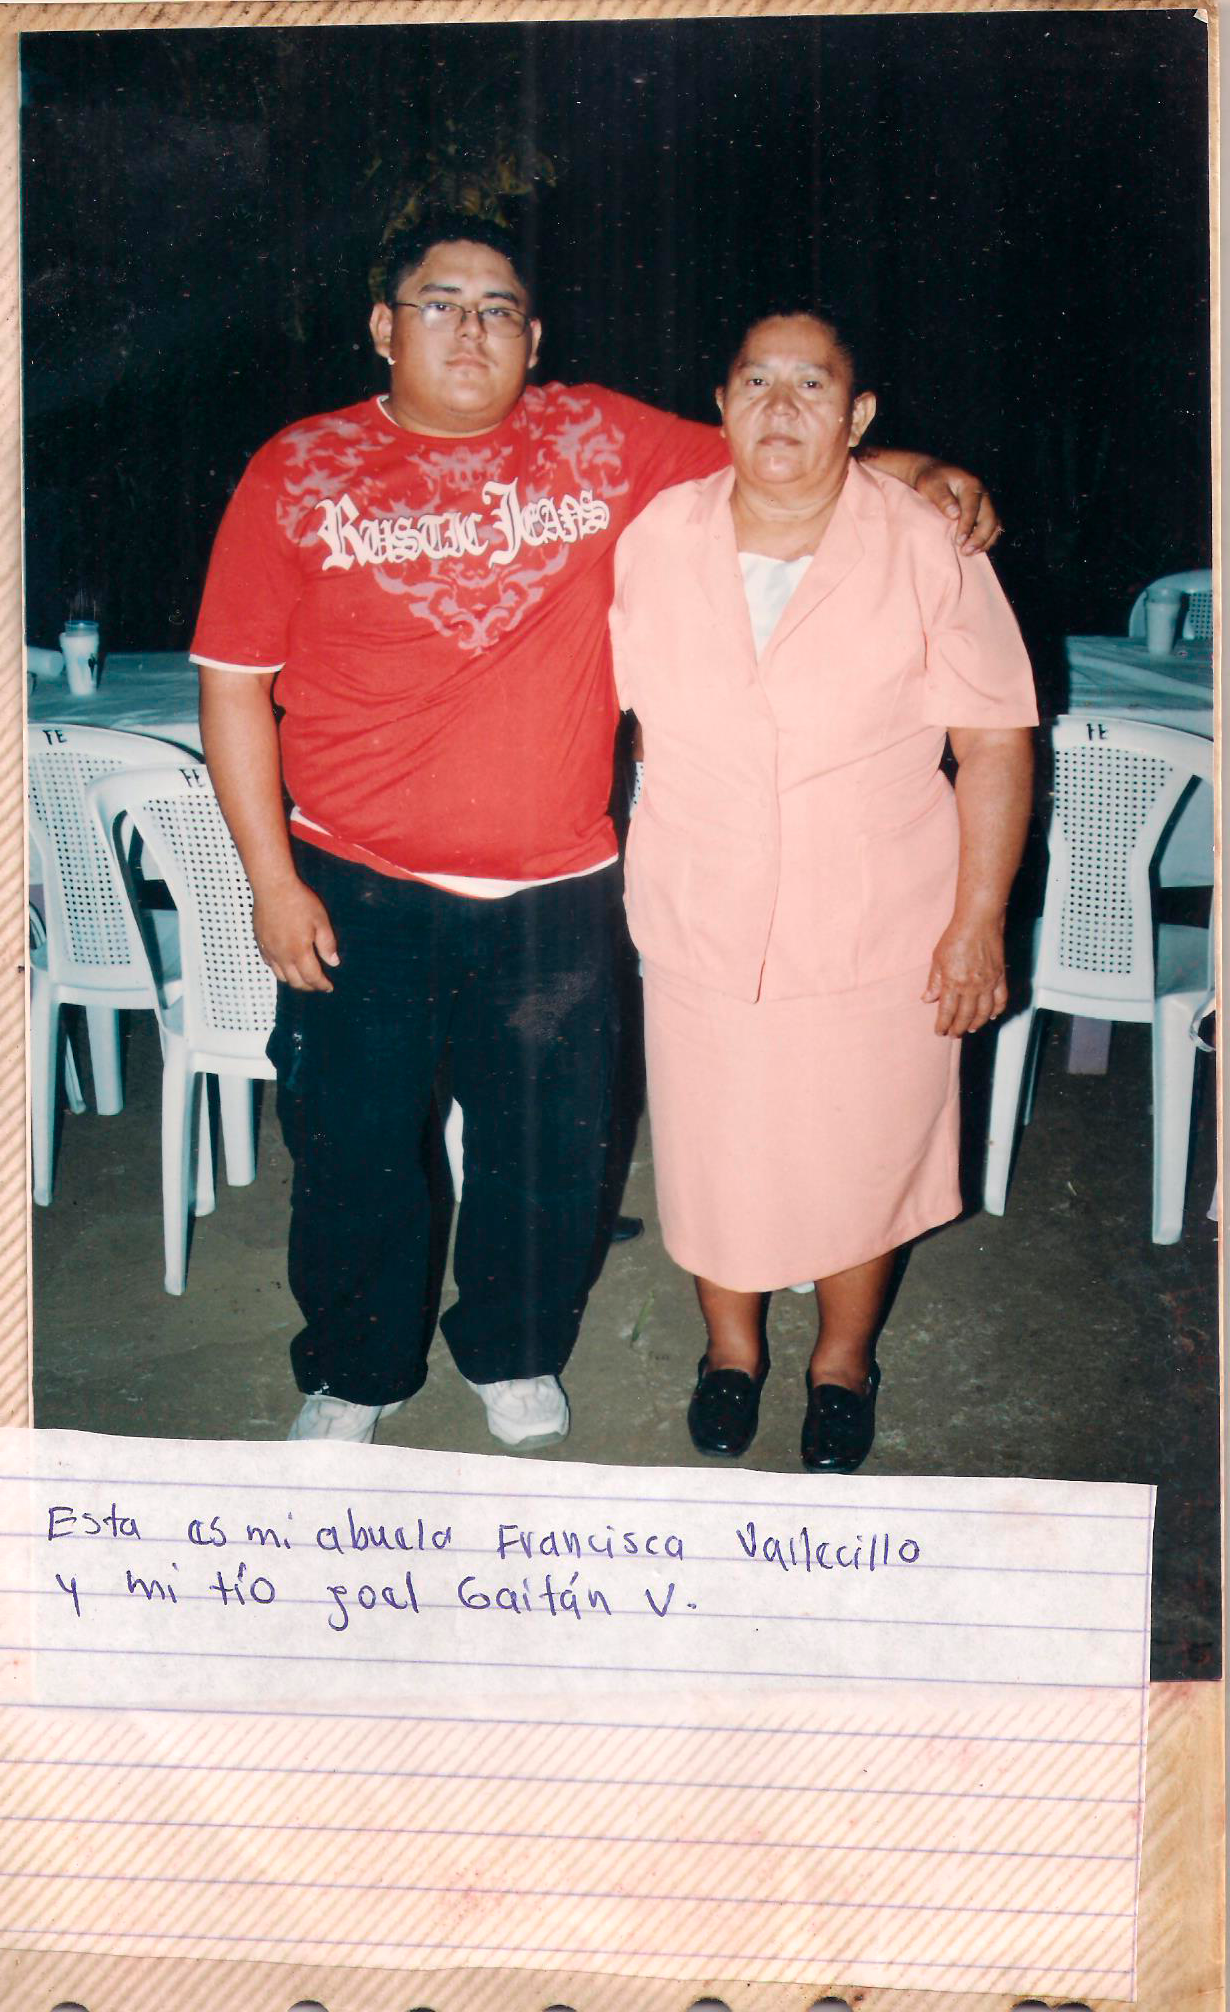 RUSTIC JEANS
FE
FE
FE
Esta es mi abuela Francisca Vallecillo
y mi tío Joel Gaitán V.